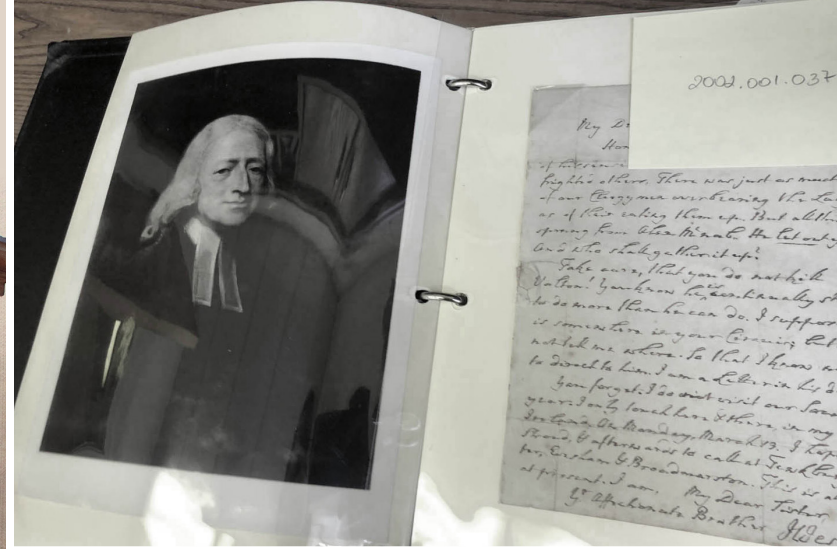 2002.001.037
My D
Hon
of
frights others. There was just as much
of our Clergymen overbearing the La
as of their eating them up. But
sprung from Alex. M'nab. He let out
and who shall gather it up?
Take care, that you do not kill
Valton! You know he is continually s
to do more than he can do. I suppos
is somewhere in your Circuit; but
not tell me where. So that I know n
to direct to him. I am a Letter in his d
You forget. I do not visit our So
year. I only touch here & there, in my
Ireland. On Monday, March 13. I hop
Stroud, & afterwards to call at
ter, Evesham & Broadmarston. This is a
at present. I am, My Dear Sister,
Yr Affectionate Brother JWes